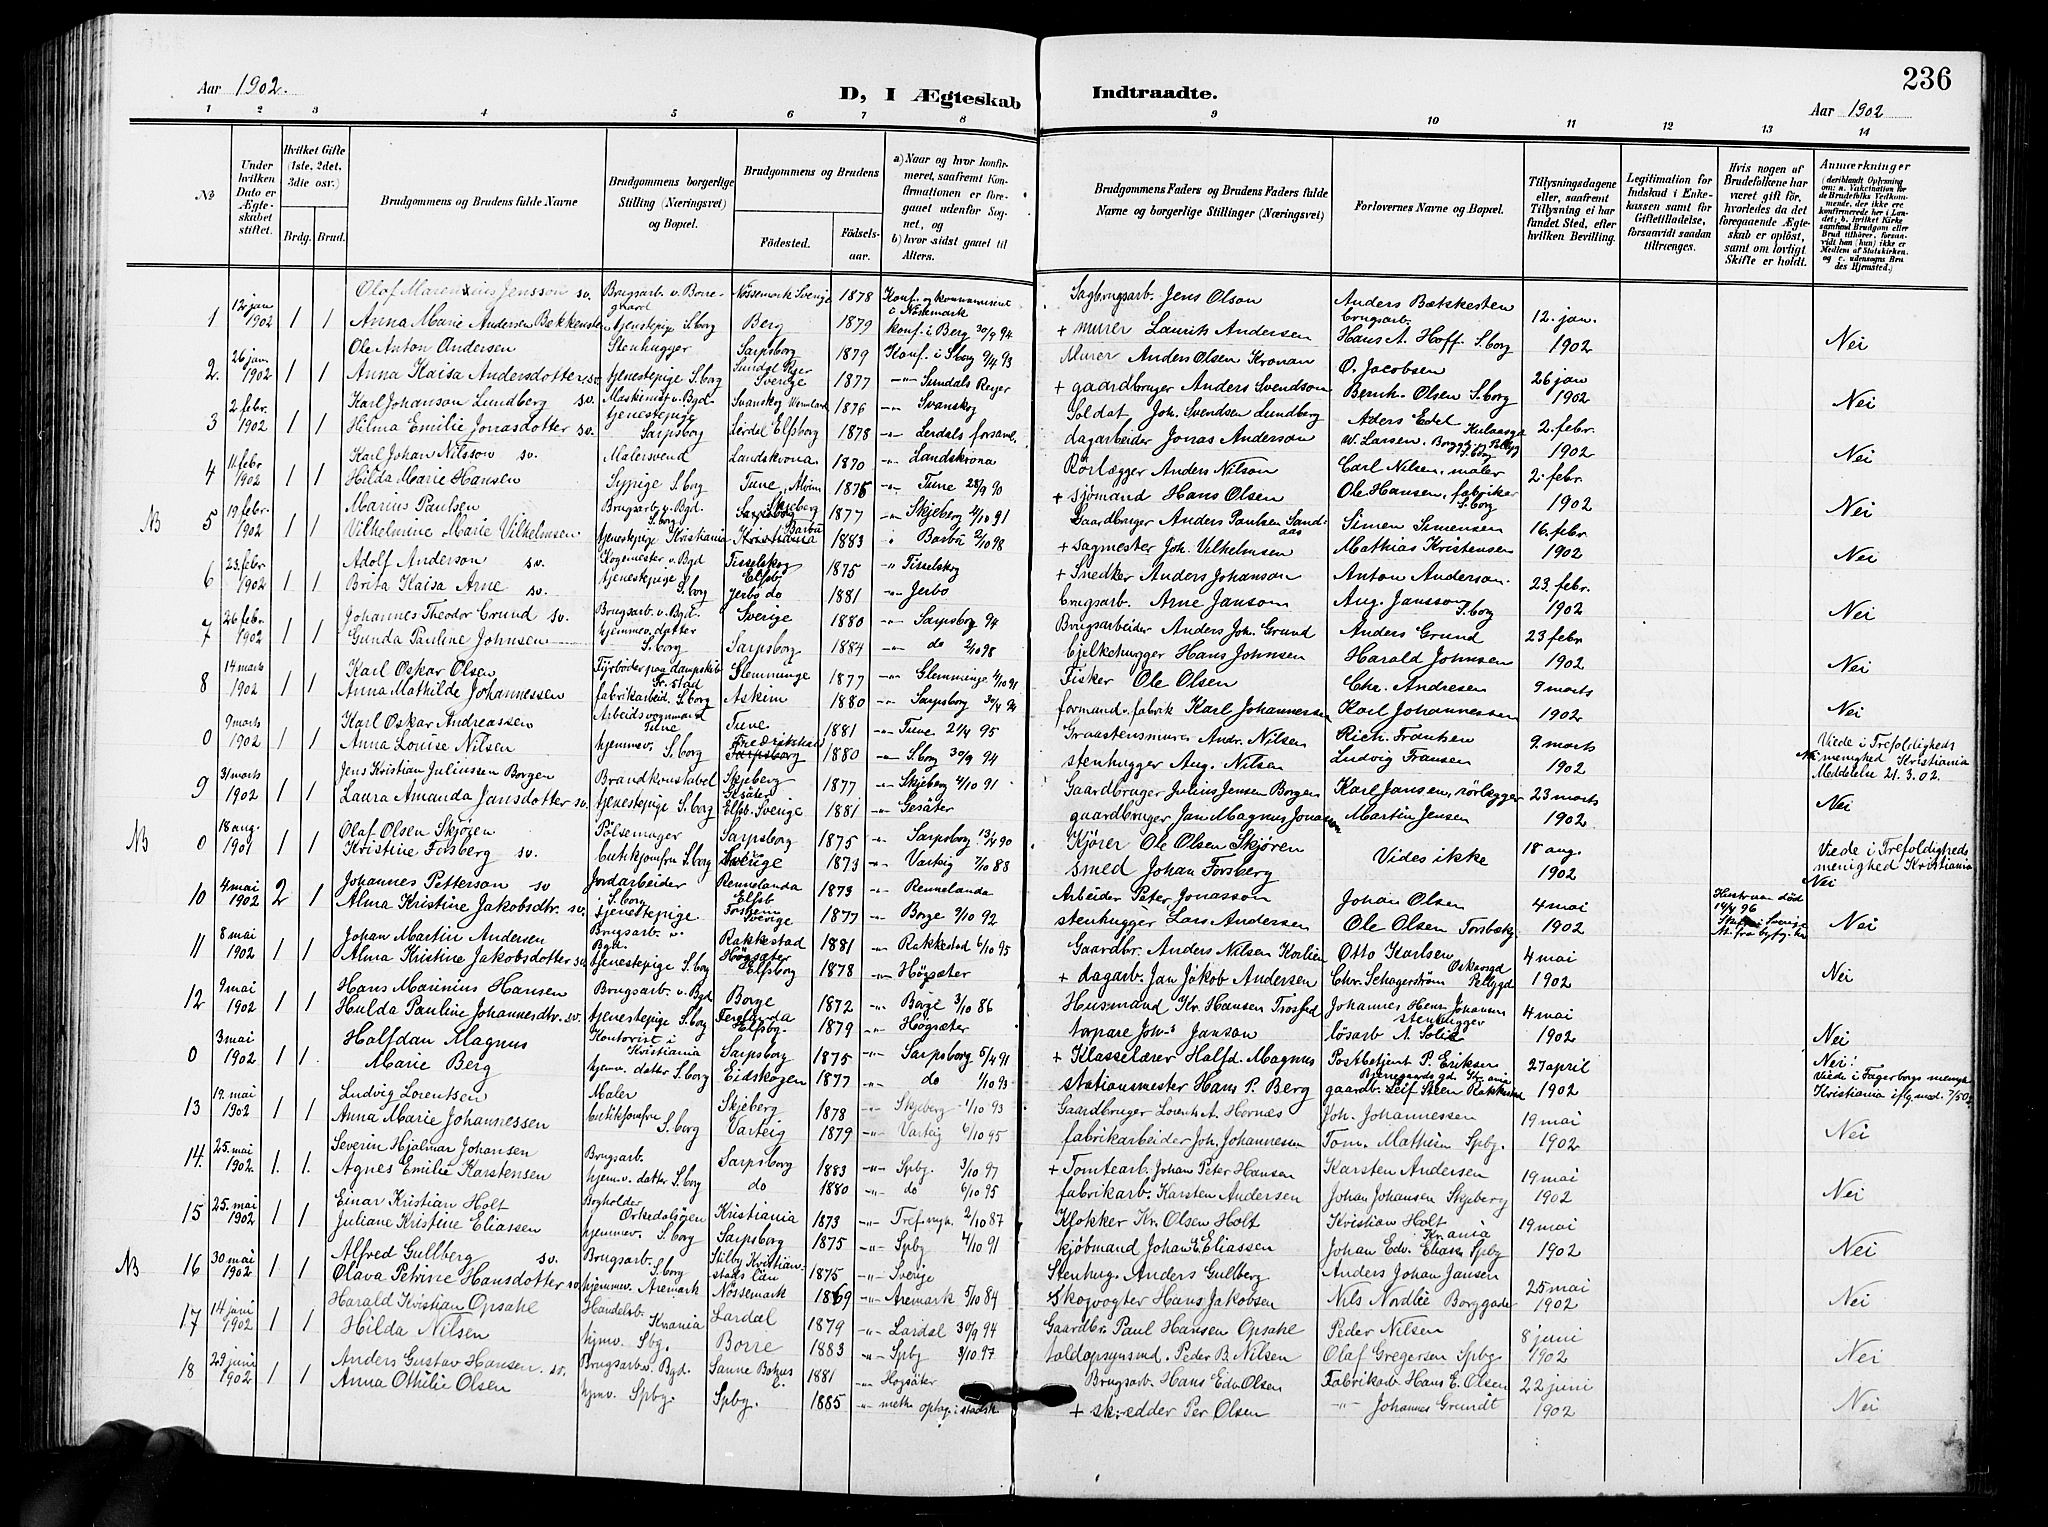 236
Aar 1902.
D, I Ægteskab Indtraadte.
Aar 1902
1 2 3 4 5 6 7 8 9 10 11 12 13 14
No
Under hvilken Dato er Ægteskabet stiftet.
Hvilket Gifte (1ste, 2det, 3die osv.)
Brdg. Brud.
Brudgommens og Brudens fulde Navne
Brudgommens borgerlige Stilling (Næringsvei) og Bopæl.
Brudgommens og Brudens
Fødested.
Fødselsaar.
a) Naar og hvor konfirmeret, saafremt Konfirmationen er foregaaet udenfor Sognet, og b) hvor sidst gaaet til Alters.
Brudgommens Faders og Brudens Faders fulde Navne og borgerlige Stillinger (Næringsvei)
Forlovernes Navne og Bopæl.
Tillysningsdagene eller, saafremt Tillysning ei har fundet Sted, efter hvilken Bevilling.
Legitimation for Indskud i Enkekassen samt for Giftetilladelse, forsaavidt saadan tiltrænges.
Hvis nogen af Brudefolkene har været gift før, hvorledes da det foregaaende Ægteskab er opløst, samt om lovligt Skifte er holdt.
Anmærkninger
1 12 jan 1902 1 1 Olaf Marenius Jensson sv. Brugsarb. v. Borregaard Nössemark Sverige 1878 Konf. og kommuniseret i Nösemark Sagbrugsarb. Jens Olson Anders Bætskesten brugsarb. 12. jan. 1902 Nei
Anna Marie Andersen Bekkensten tjenestepige S.borg Berg 1879 konf. i Berg 30/9 94 + murer Laurits Andersen Hans A. Hoff S.borg
2. 26 jan 1902 1 1 Ole Anton Andersen Stenhugger Sarpsborg 1879 Konf. i S.borg 9/4 93 Murer Anders Olsen Kronan O. Jacobsen 26 jan 1902 Nei
Anna Kaisa Andersdotter sv. tjenestepige S.borg Sundal Ryer Sverige 1877 -"- Sundals Reyer + gaardbruger Anders Svendson Bernh. Olsen S.borg
3 2 febr. 1902 1 1 Karl Johanson Lundberg sv. Maskinist v. Bgd. Svanskog Wermland 1876 -"- Svanskog Soldat Joh. Svendsen Lundberg 2. febr. 1902 Nei
Hilma Emilie Jonasdotter sv. tjenestepige Sarpsborg Lerdal Elfsborg 1878 -"- Lerdals forsaml. dagarbeider Jonas Anderson W. Larsen
4 11. febr 1902 1 1 Karl Johan Nilsson sv. Malersvend Landskrona 1870 -"- Landskrona Rørlægger Anders Nilson Carl Nilsen, maler 2. febr. 1902 Nei
Hilda Marie Hansen Sypige S.borg Tune, Alvim 1876 -"- Tune 28/9 90 + sjømand Hans Olsen Ole Hansen, fabriker S.borg
NB 5 19 febr. 1902 1 1 Marius Paulsen Brugsarb. v. Bgd. S.borg Skjeberg Sarpsborg 1877 -"- Skjeberg 4/10 91 Gaardbruger Anders Paulsen Sandaas Simen Simensen 16. febr 1902 Nei
Vilhelmine Marie Vilhelmsen tjenestepige Kristiania Barbu Kristiania 1883 " Barbu 2/10 98 + sagmester Joh. Vilhelmsen Mathias Kristensen
6 23. febr 1902 1 1 Adolf Anderson sv. Kogemester v. Bgd Tisselskog Elfsb. 1875 -"- Tisselskog + Snedker Anders Johanson Anton Anderson. 23. febr. 1902 Nei
Brita Kaisa Arne sv. tjenestepige S.borg Jerbo do 1881 -"- Jerbo brugsarb. Arne Janson Aug. Jansson S.borg
7 26 febr. 1902 1 1 Johannes Theodor Grund sv. Brugsarb. v. Bgd. Sverige 1880 -"- Sarpsborg 94 Brugsarbeider Anders Joh. Grund Anders Grund 23 febr. 1902 Nei
Gunda Pauline Johnsen hjemmev. datter S.borg Sarpsborg 1884 -"- do 2/10 98 bjelkehugger Hans Johnsen Harald Johnsen
8 14 marts 1902 1 1 Karl Oskar Olsen Fyrbøder paa dampskib Fr.stad Glemminge 1877 -"- Glemminge 4/10 91 Fisker Ole Olsen Chr. Andresen 9 marts 1902 Nei
Anna Mathilde Johannessen fabrikarbeid. S.borg Askim 1880 -"- Sarpsborg formand v. fabrik Karl Johannessen Karl Johannessen
0 9 marts 1902 1 1 Karl Oskar Andreassen Arbeidsvognmand Tune Tune 1881 -"- Tune 21/4 95 Graastensmurer Andr. Nilsen Rich. Frantsen 9. marts 1902 Viede i Trefoldigheds menighed Kristiania Meddelelse 21.3.02. Nei
Anna Louise Nilsen hjemmev. S.borg Fredrikstad Sarpsborg 1880 -"- S.borg 30/9 94 stenhugger Aug. Nilsen Ludvig Fransen
9 31 marts 1902 1 1 Jens Kristian Juliussen Borgen Brandkonstabel Skjeberg 1877 -"- Skjeberg 4/10 91 Gaardbruger Julius Jensen Borgen Karl Jansen, rörlægger 23 marts 1902 Nei
Laura Amanda Jansdotter sv. tjenestepige S.borg Gesäter Elfsb. Sverige 1881 -"- Gesäter gaardbruger Jan Magnus Jonasson Martin Jensen
NB 0 18 aug. 1901 1 1 Olaf Olsen Skjøren Pölsemager Sarpsborg 1875 -"- Sarpsborg 13/4 90 Kjører Ole Olsen Skjøren Vides ikke 18 aug. 1902 Viede i Trefoldigheds menighed Kristiania Nei
Kristine Forsberg sv. butikjomfru S.borg Sverige 1873 -"- Varteig 7/10 88 smed Johan Forsberg
10 4 mai 1902 2 1 Johannes Petterson sv Jordarbeider S.borg Rennelanda Elfsb 1873 -"- Rennelanda Arbeider Peter Jonasson Johan Olsen 4 mai 1902 Hustruen död Nei
Alma Kristine Jakobsdtr. sv. tjenestepige Sverige 1877 -"- Borge 9/10 92 stenhugger Lars Andersen Ole Olsen Torsbekg.
11 8 mai 1902 1 1 Johan Martin Andersen Brugsarb. v. Bgd. Rakkestad 1881 -"- Rakkestad 6/10 95 Gaardbr. Anders Nilsen Kolien Otto Karlsen Oskarsgd 4 mai 1902 Nei
Alma Kristine Jakobsdotter sv. tjenestepige S.borg Högsäter Elfsborg 1878 -"- Högsäter + dagarb. Jan Jakob Andersen Chr. Schagerström Pellygd
12 9 mai 1902 1 1 Hans Marinius Hansen Brugsarb. v. Bgd Borge 1872 -"- Borge 3/10 86 Husmand Kr. Hansen Trosfed Johannes Henr. Johansen stenhugger 4 mai 1902 Nei
Hulda Pauline Johannesdtr. sv. tjenestepige S.borg Ferelanda Elfsbg. 1879 -"- Högsæter torpare Johs Janson lösarb A. Solid
0 3 mai 1902 1 1. Halfdan Magnus Kontorist i Kristiania Sarpsborg 1875 -"- Sarpsborg 5/4 91 + Klasselærer Halfd. Magnus Postbetjent P. Eriksen 27 april 1902 Nei! Viede i Fagerborgs menigh Kristiania
Marie Berg hjmv. datter S.borg Eidskogen 1877 -"- do 1/10 93 stationsmester Hans P. Berg gaardb. Leif Steen Rakkestad
13 19. mai 1902 1 1 Ludvig Lorentsen Maler Skjeberg 1878 -"- Skjeberg 1/10 93 Gaardbruger Lorents A. Hornæs Joh. Johannessen 19 mai 1902 Nei
Anna Marie Johannessen butikjomfru S.borg Varteig 1879 -"- Varteig 6/10 95 fabrikarbeider Joh. Johannesen Tom. Mathisen Spbg.
14. 25. mai 1902. 1. 1. Severin Hjalmar Johansen Brugsarb. Sarpsborg 1883 -"- Spbg. 3/10 97 + Tomtearb. Johan Peter Hansen Karsten Andersen 19 mai 1902 Nei
Agnes Emilie Karstensen hjem.v. datter S.borg do 1880 -"- do 6/10 95 fabrikarb. Karsten Andersen Johan Johansen Skjeberg
15 25. mai 1902 1 1 Einar Kristian Holt Bogholder Orkedalsören Kristiania 1873 -"- Tref. mgh. 2/10 87 Klokker Kr. Olsen Holt Kristian Holt Krania 19 mai 1902 Nei
Juliane Kristine Eliassen hjemmev. S.borg Sarpsborg 1875 -"- Spbg 4/10 91 kjöbmand Johan E. Eliassen Johan Edv. Eliasen Spbg
NB 16 30 mai 1902 1 1 Alfred Gullberg sv. Brugsarb. S.borg Stilby Kristianstads län 1875 -"- Sverige Stenhug. Anders Gullberg Anders Johan Jansen 25 mai 1902 Nei
Olava Petrine Hansdotter sv. hjemmev. Aremark Nössemark 1869 -"- Aremark 5/10 84 Skogvogter Hans Jakobsen Nils Nordlie Borggaden
17 14 juni 1902 1 1 Harald Kristian Opsahl Handelsb. Krania Lardal 1879 -"- Lardal 30/9 94 Gaardbr. Paul Hansen Opsahl Peder Nilsen 8 juni 1902 Nei
Hilda Nilsen hjmv. Sbg. Borre 1883 -"- Spbg 3/10 97 toldopsynsmd. Peder B. Nilsen Olaf Gregersen Spbg
18 29 juni 1902 1 1 Anders Gustav Hansen. sv. Brugsarb v. Bgd. Sanne Bohus l. 1881 -"- Hogsäter Brugsarb. Hans Edv. Olsen Fabrikarb Hans E. Olsen 22 juni 1902 Nei
Anna Othilie Olsen hjmv. Spbg. Spbg. 1885 -"- meth. optag. i statsk. + skredder Per Olsen -"- Johannes Grundt